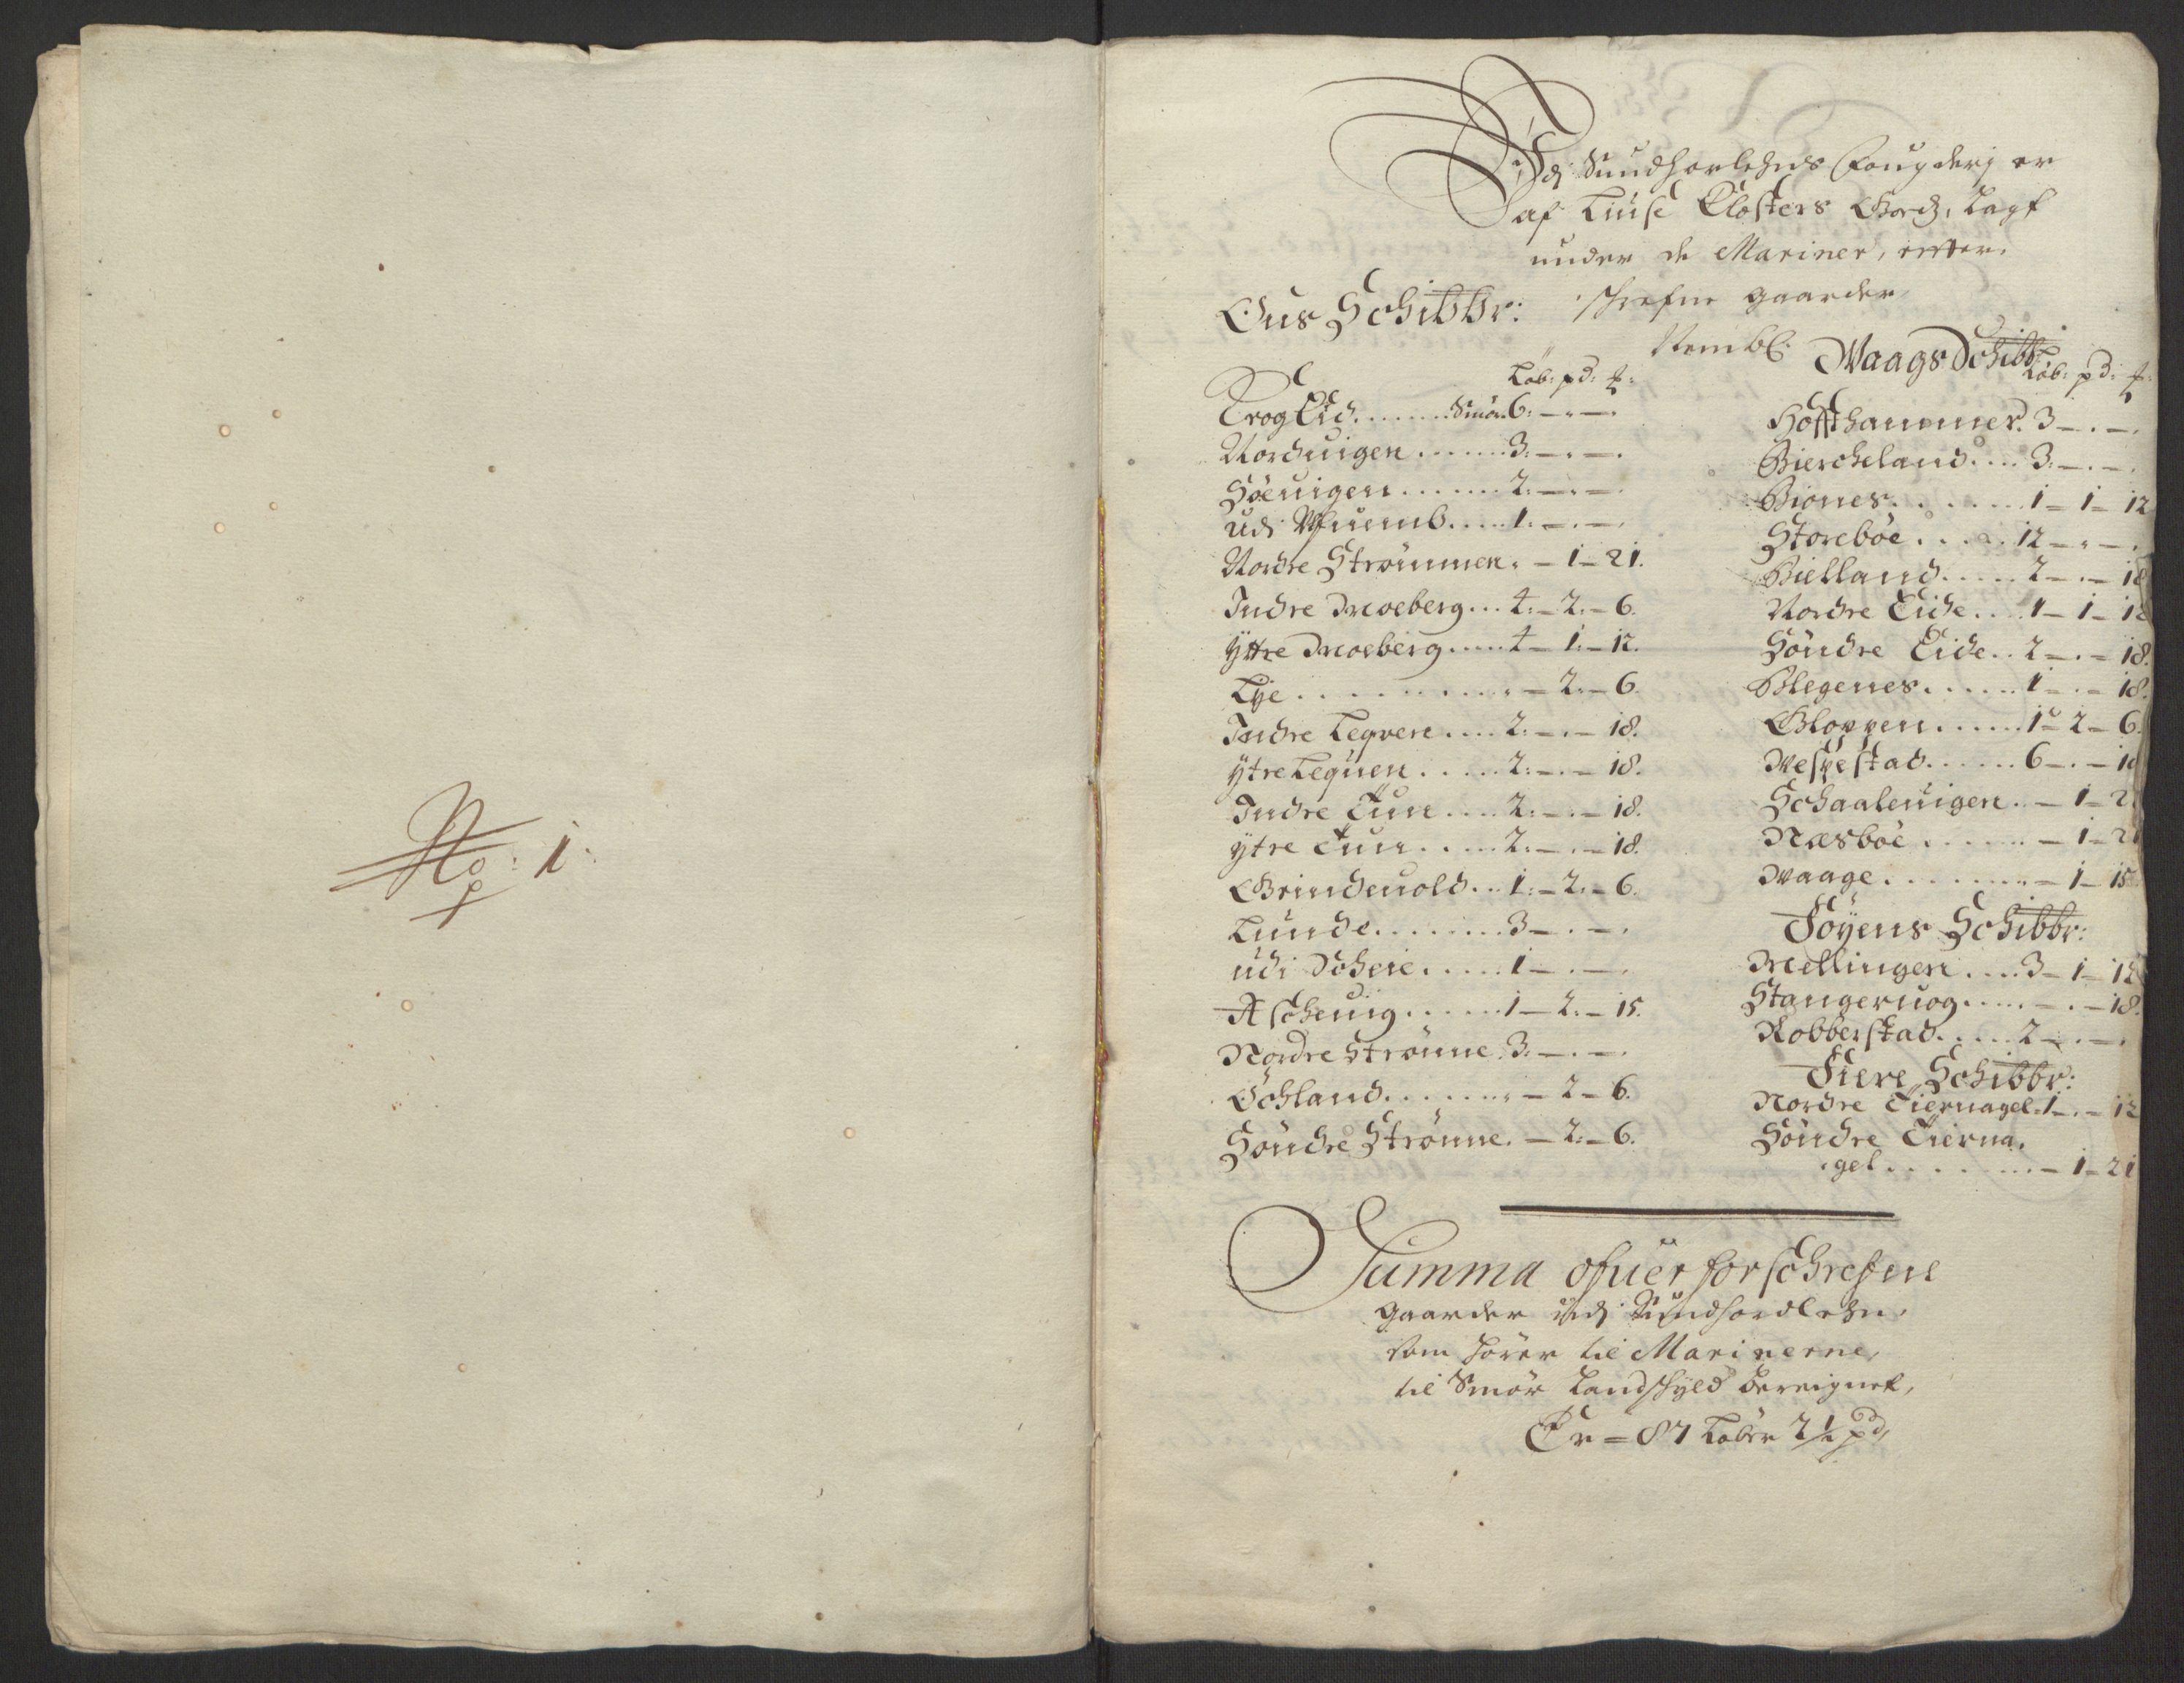 No: 1:
Udj Sundhorlehns Fougderj er
af Liuse Closters Gods, Lagt
under de Mariner, effter
schrefne gaarder
Nembl:
Ous Schibbr:
Løb: pd: ℔:
Trog Eid ........ Smør 6: — . — .
Norduigen ....... 3: — . — .
Søeuigen ....... 2: — . — .
Udj ..... 1: — . — .
Nordre Strømmen . — 1 — 21.
Indre Moeberg ... 4: — 2: — 6.
Yttre Moeberg ..... 4 — 1: — 12.
Lije ........... — 2: — 6.
Indre Leqven .... 2: — . — 18.
ytre Lequen ..... 2: — . — 18.
Indre Tun .... 2: — . — 18.
ytre Tun ..... 2: — . — 18.
Grindeuold ... 1: — 2: — 6.
Lunde ........ 3 — . — .
udi Scheie ..... 1 — . — .
Ascheuig ...... 1 — 2: — 15.
Nordre Strønne . 3: — . — .
Øchland ....... — 2 — 6.
Søndre Strønne . — 2: — 6.
Waags Schibbr:
Løb: pd: ℔:
Hoffthammer . 3 — . — .
Bierckeland .... 3: — . — .
Biones ....... 1 — 1 — 12
Storebøe ..... 12 — . — .
Bielland ..... 2 — . — 18
Nordre Eide ... 1 — 1 — 12
Søndre Eide .. 2 — . — 18.
Blegenes ...... 1 — . — 18.
Gloppen ...... 1 — 2 — 6.
Wespestad ...... 6 — . — 18
Schaaleuigen . — 1 — 21
Næsbøe ...... — 1 — 21
Waage ........ — 1 — 15
Føyens Schibbr:
Mellingen .... 3 — 1 — 12
Stangeruog ..... — . — 18.
Robberstad ..... 2 — . — .
Fiere Schibbr:
Nordre Tiernagel . 1 — . — 12
Søndre Tierna,
gel ........ — 1 — 21
Summa ofuer forschrefne
gaarder udj Sundhordlehn,
som hører til Marinerne,
til Smør Landschyld bereignet,
Er = 87 Løber 2½ pd,